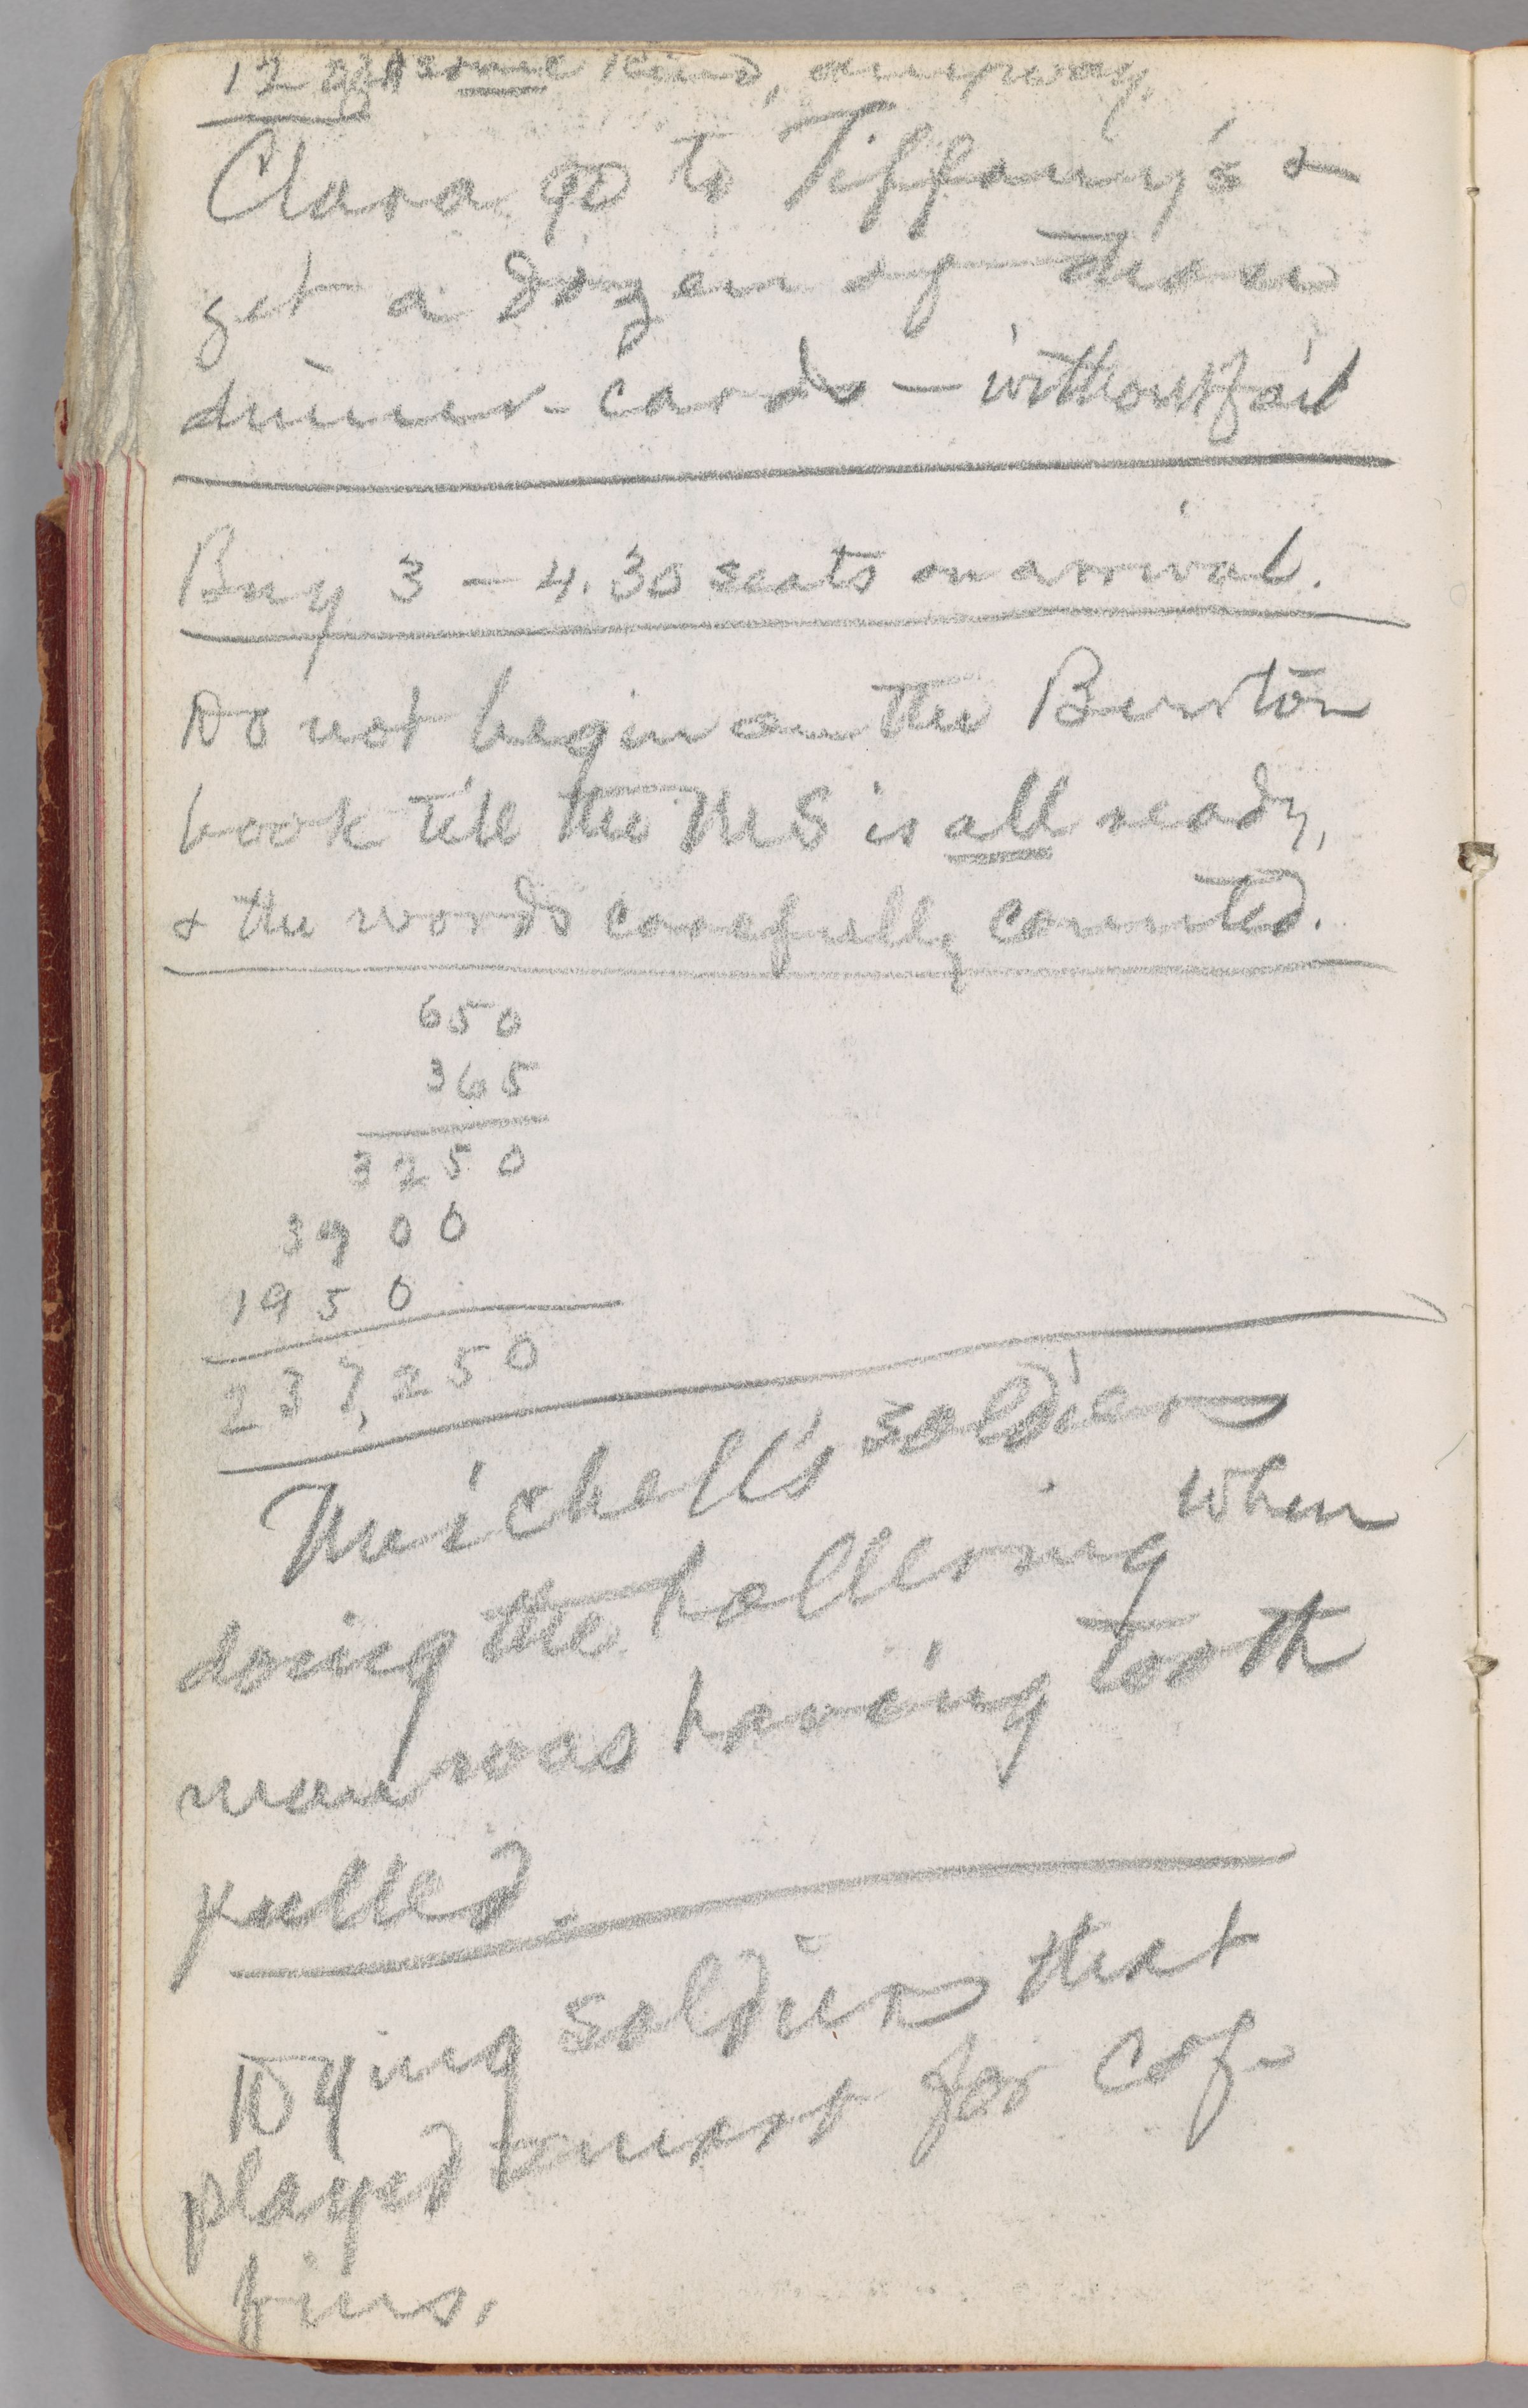 12 of some kind, anyway.
Clara go to Tiffany's &
get a dozen of those
dinner-cards — without fail
Buy 3 — 4.30 seats on arrival.
Do not begin on the Burton
book till the MS is all ready,
& the words carefully counted.
650
365
3250
3900
1950
237,250
Michell's soldier
doing the hollering when
man was having tooth
pulled.
Dying soldier that
played smart for cof-
fins.